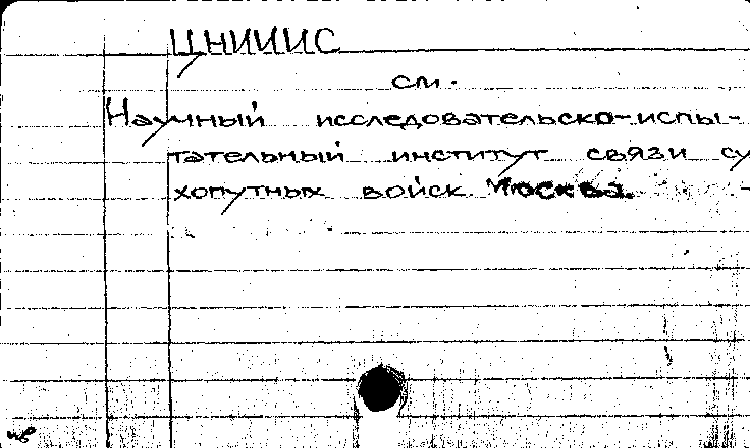 ЦНИИИС
см.
Научный исследовательско-испы-
тательный институт связи су
хопутных войск Москва.